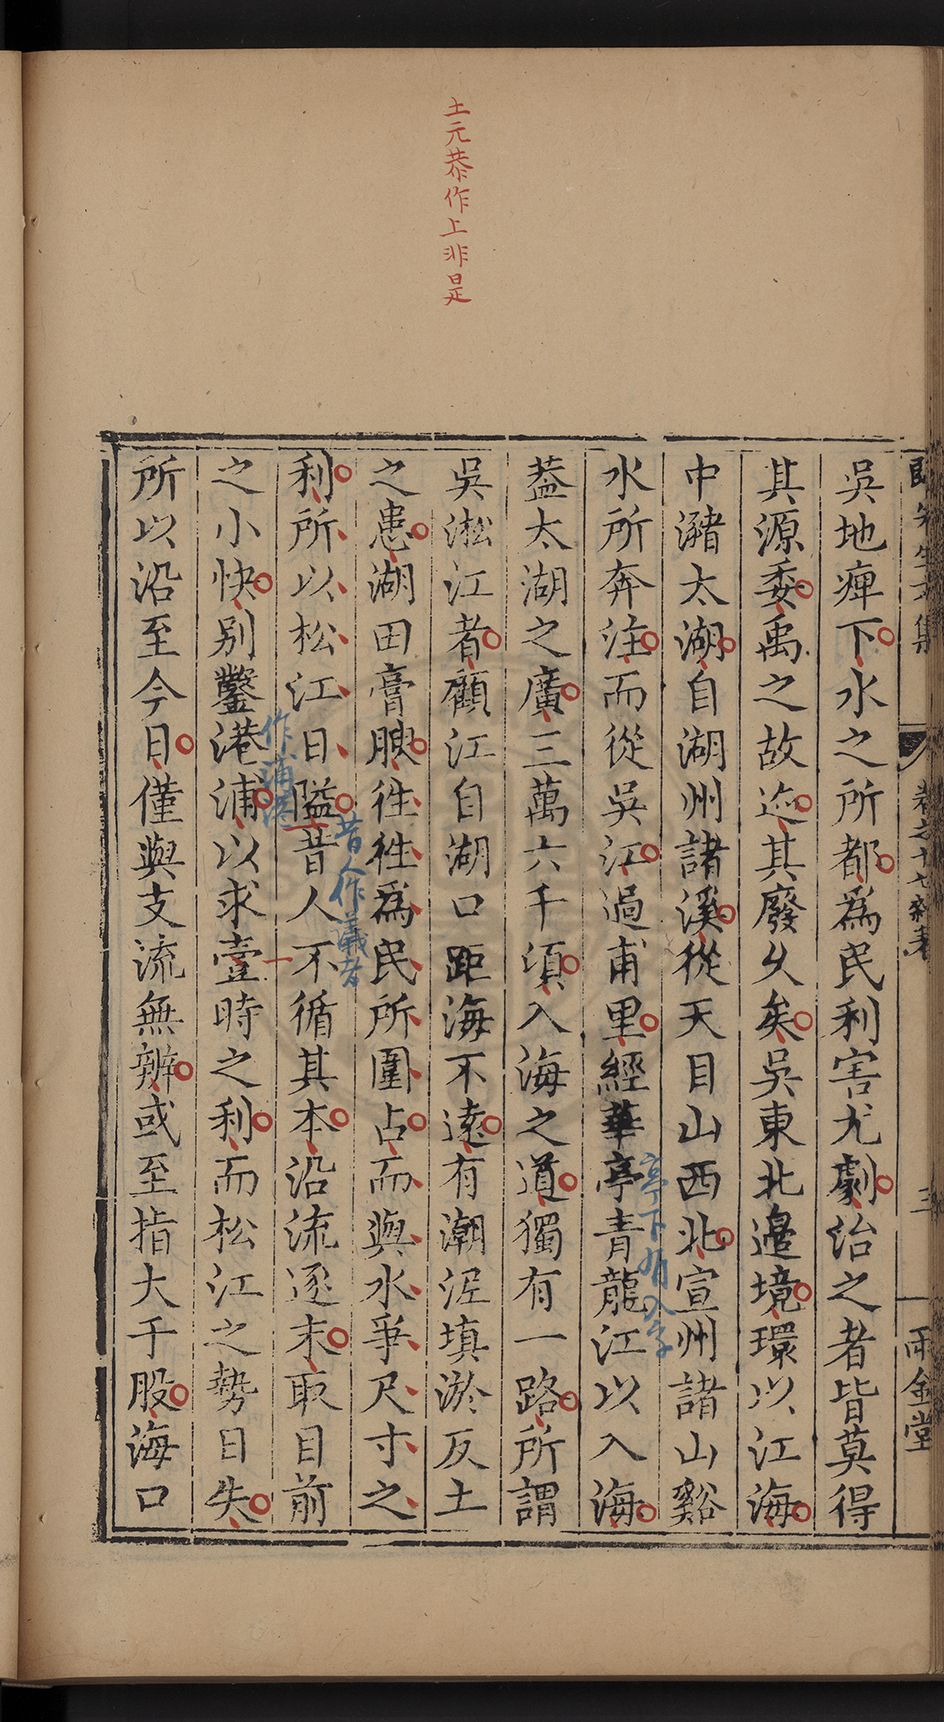 土元恭作上非是
吳地痺下水之所都爲民利害尤劇治之者皆莫得
其源委禹之故迹其廢乆矣吳東北邊境環以江海
中瀦太湖自湖州諸溪從天目山西北宣州諸山谿
水所奔注而從吳江過甫里經華亭青龍江以入海
亭下有入字
葢太湖之廣三萬六千湏入海之道獨有一路所謂
吳淞江者顧江自湖口距海不遠有潮泥填淤反土
之患湖田膏腴徃徃爲民所圍占而與水爭尺寸之
昔人作議者
利所以松江日隘昔人不循其本沿流逐末取目前
作蒲港
之小快别鑿港浦以求壹時之利而松江之勢日失
一
所以沿至今日僅與支流無辨或至指大于股海口
先生文集
卷之十七雜著
三
雨金堂